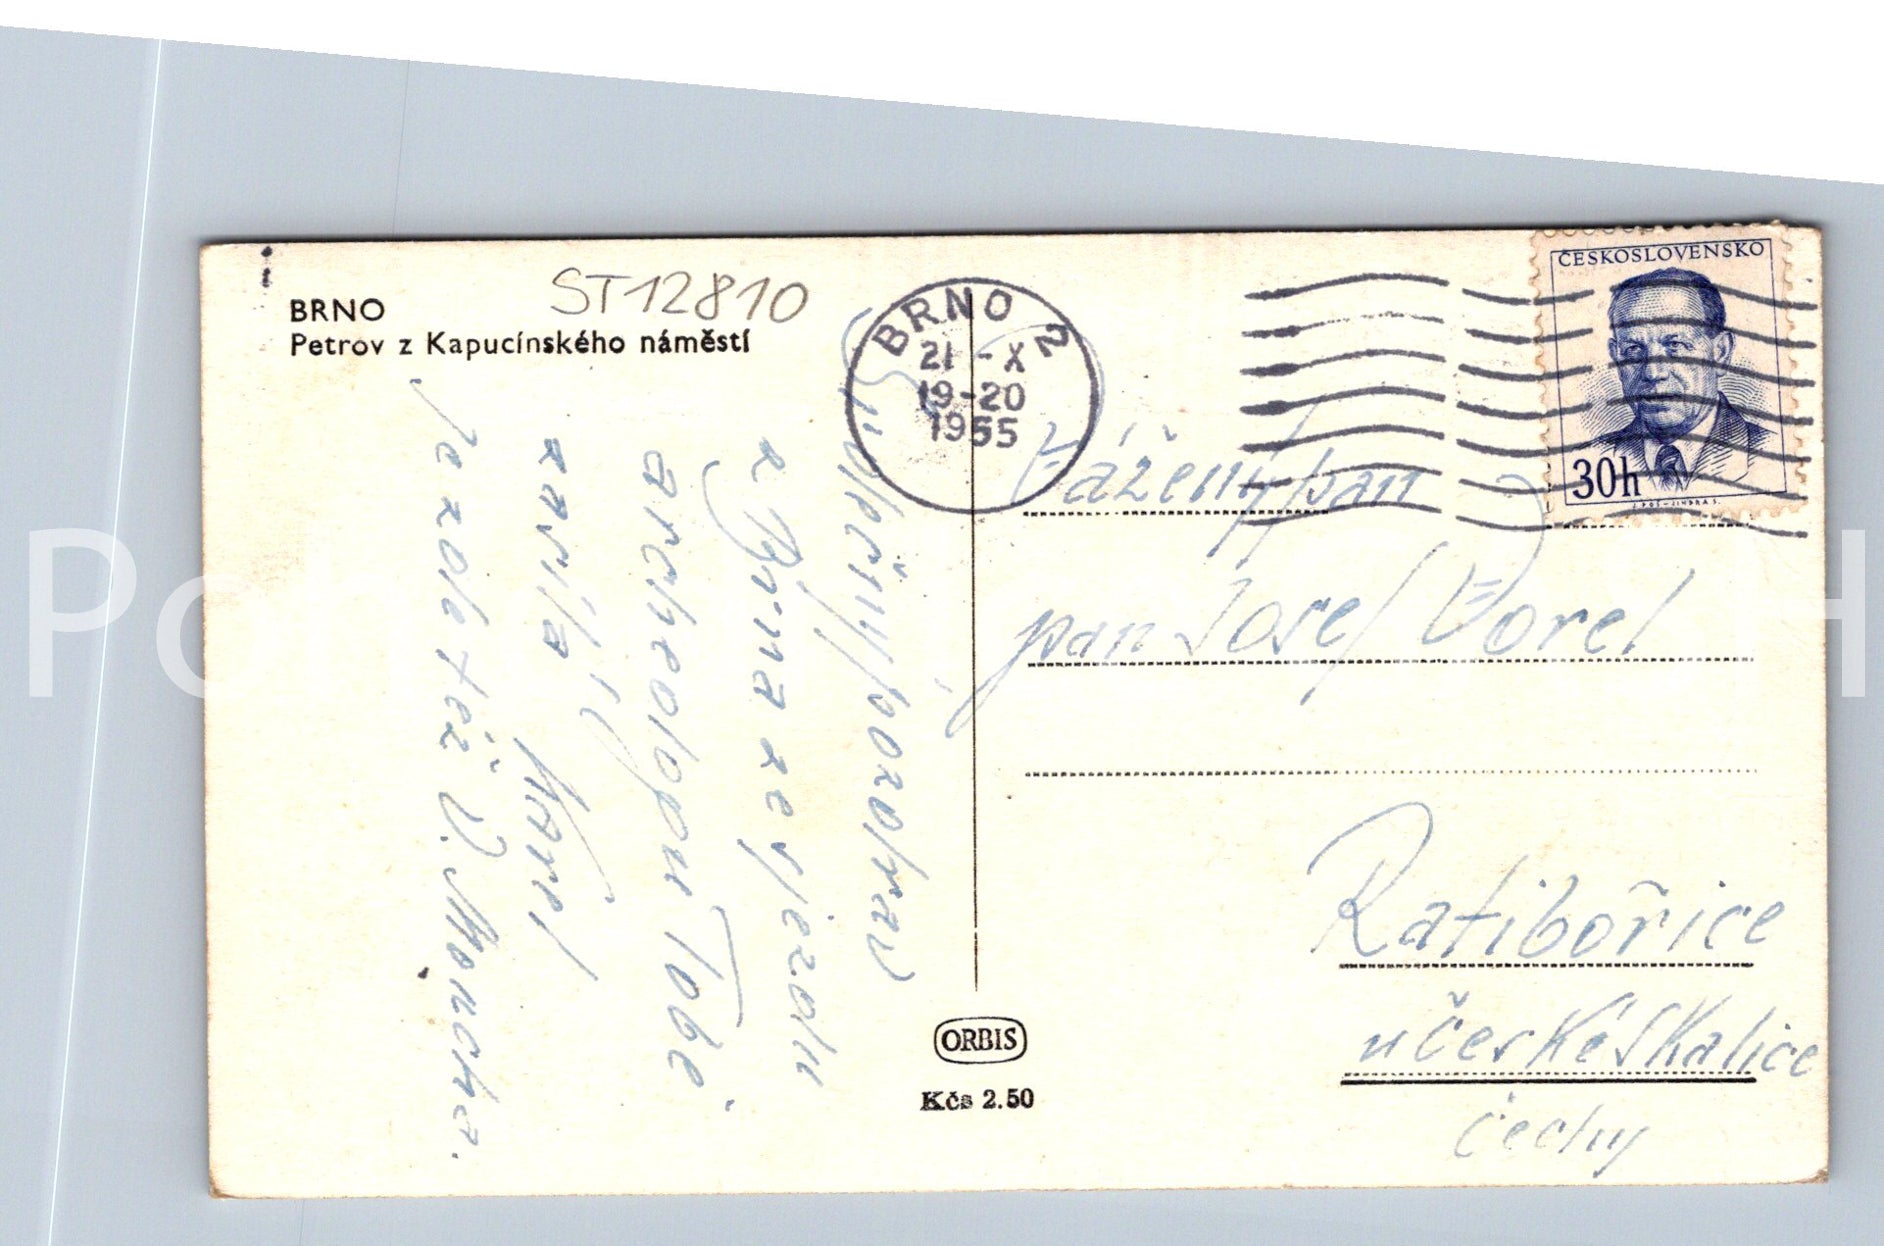 BRNO
Petrov z Kapucínského náměstí
ST12810
BRNO 2
21-X
19-20
1955
ČESKOSLOVENSKO
30h
Srdečný pozdrav
z Brna ze sjezdu
archeologu Tobě
zasílá
Karel
Je zde též J. Moucha.
Vážený pan
pan Josef Vorel
Ratibořice
u České Skalice
Čechy
ORBIS
Kčs 2.50